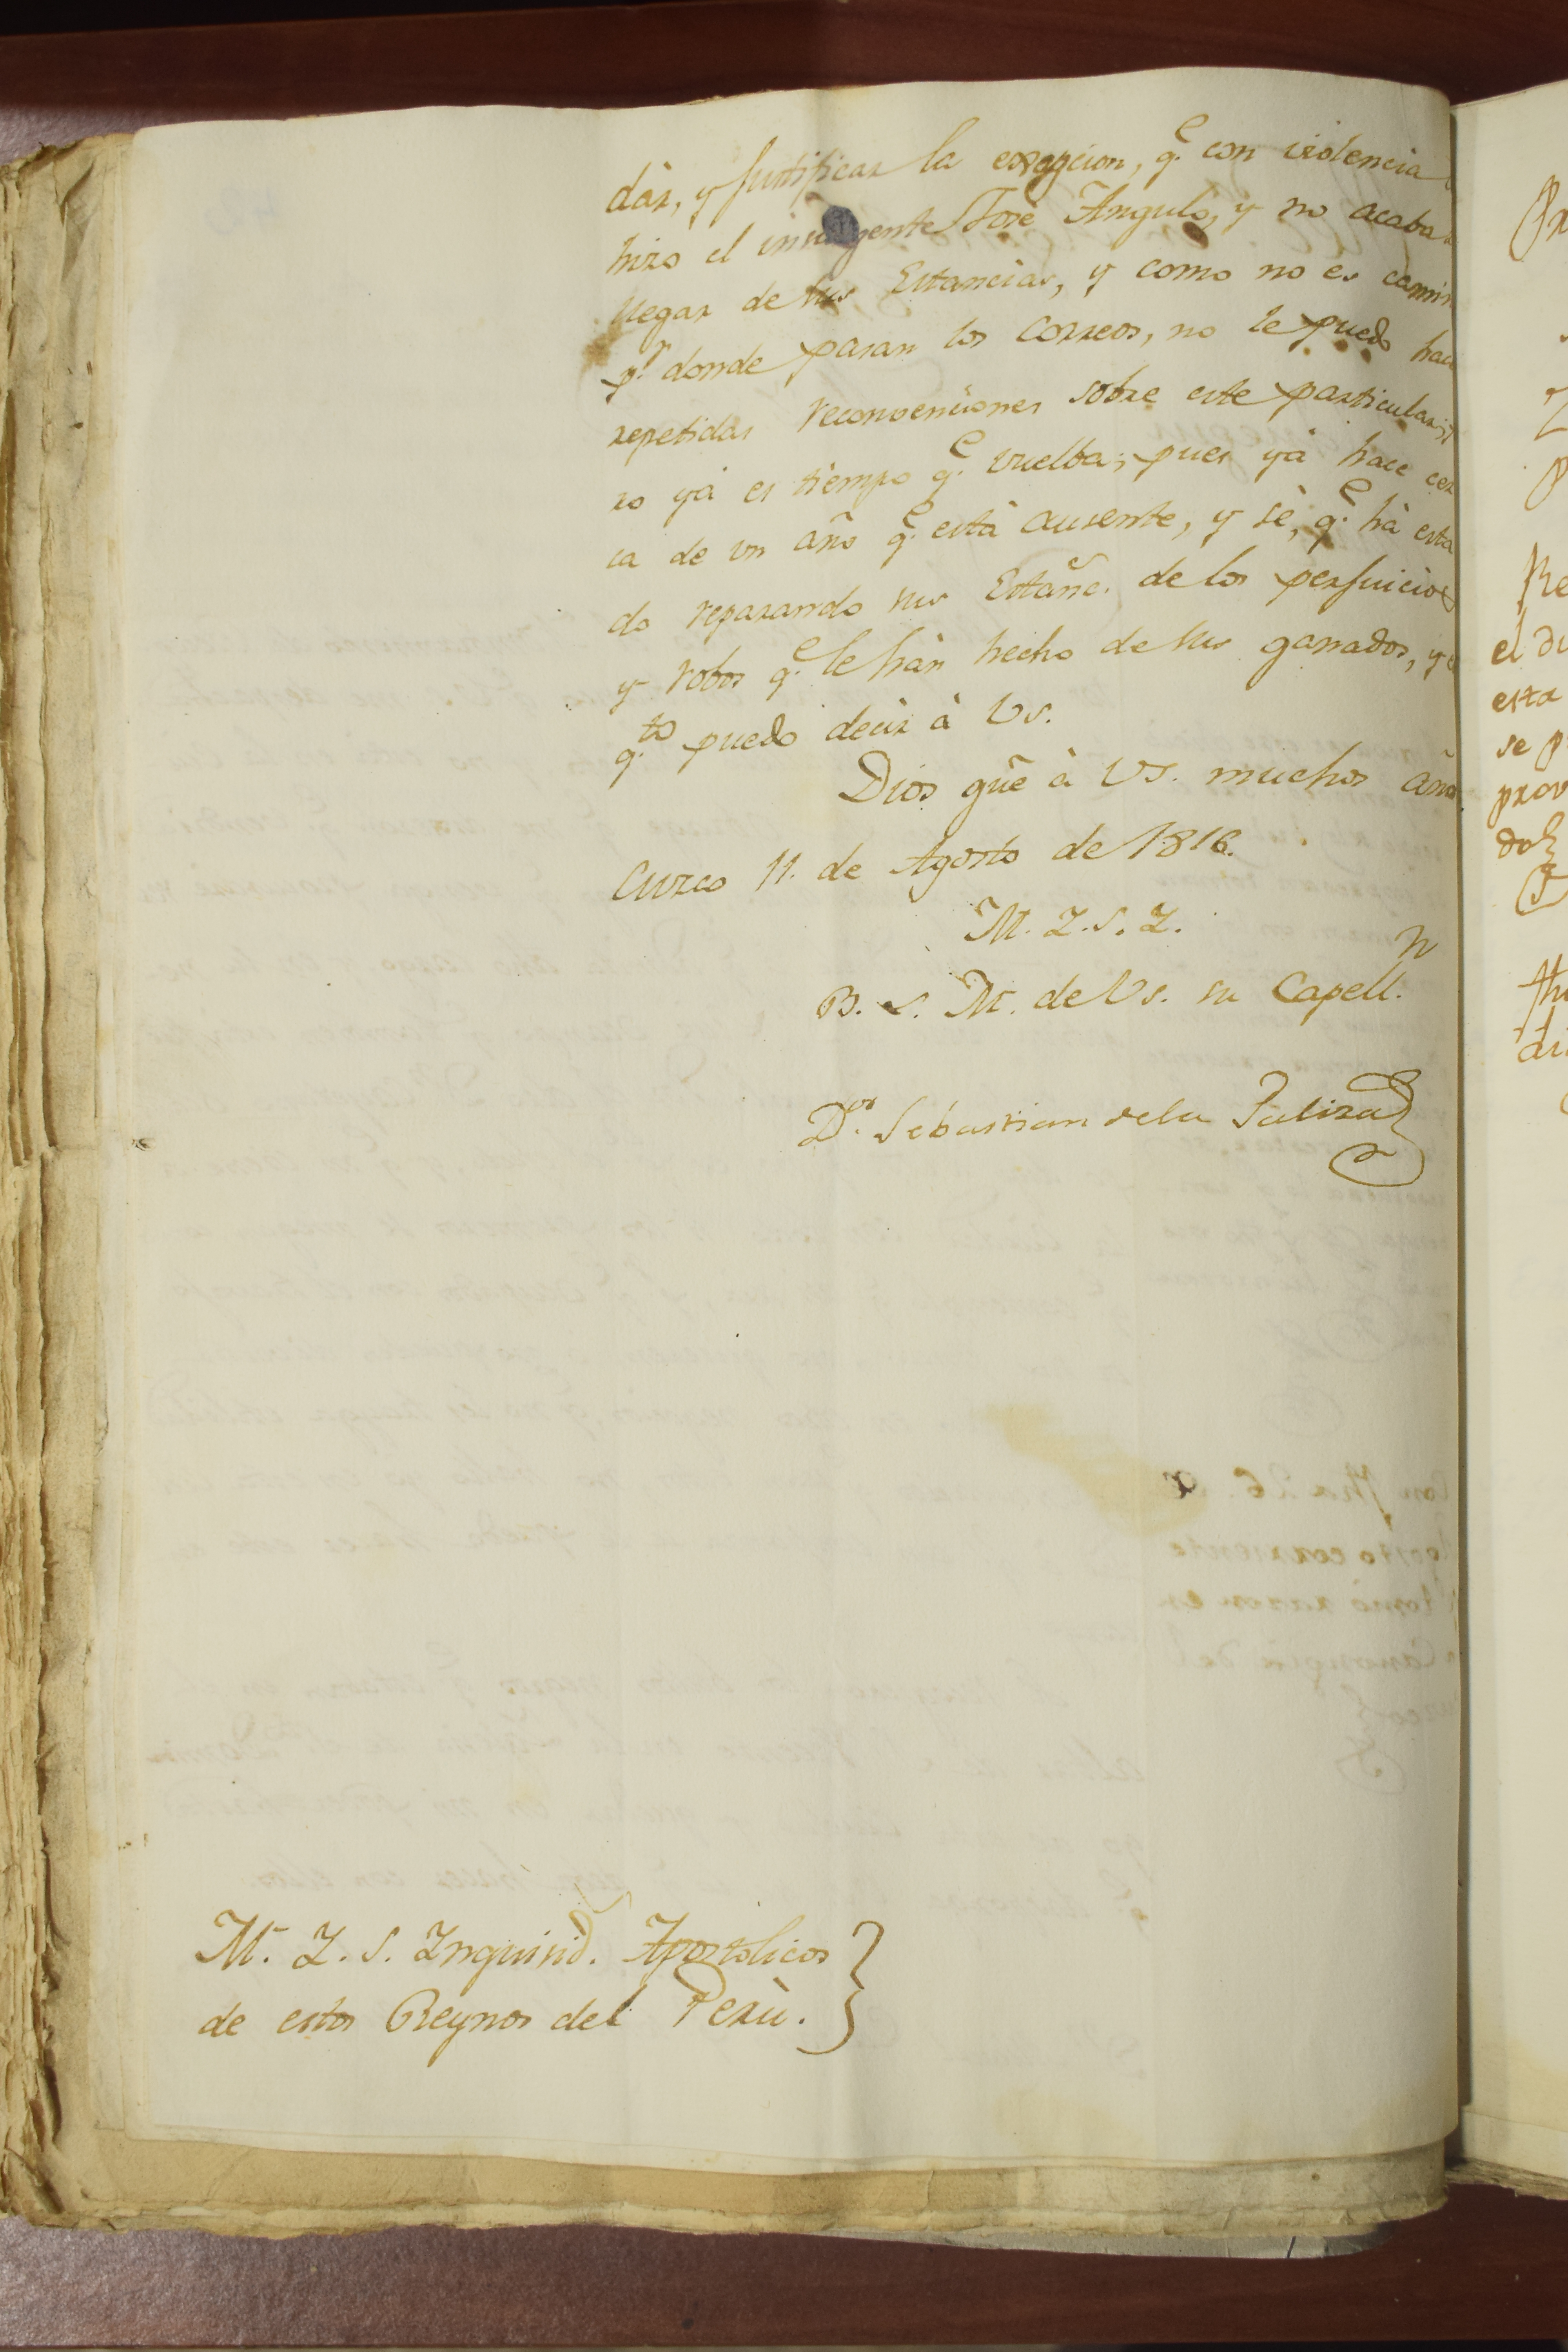 dàr, y justificar la exepcion, q.e con violencia
hizo el insurgente José Angulo, y no acaba
llegar de sus Estancias, y como no es camin
p.r donde pasan los Correos, no le puedo hac
repetidas reconvenciones sobre este particular;
ro yá es tiempo q.e vuelba; pues yá hace cer
ca de un año q.e está ausente, y sè, q.e hà esta
do reparando sus Estanc.s de los perjuicios
y robos q.e le hàn hecho de sus ganados, y
q.to puedo decir à Vs.
Dios gũe à VS. muchos años
Cuzco 11. de Agosto de 1816.
M. I. S. I.
B. S. M. de Vs. su Capell.n
D.or Sebastian de la Paliza
M. I. S. Inquisid. Apostolicos
de estos Reynos del Perù.
Re
el du
esta
se p
prov
do